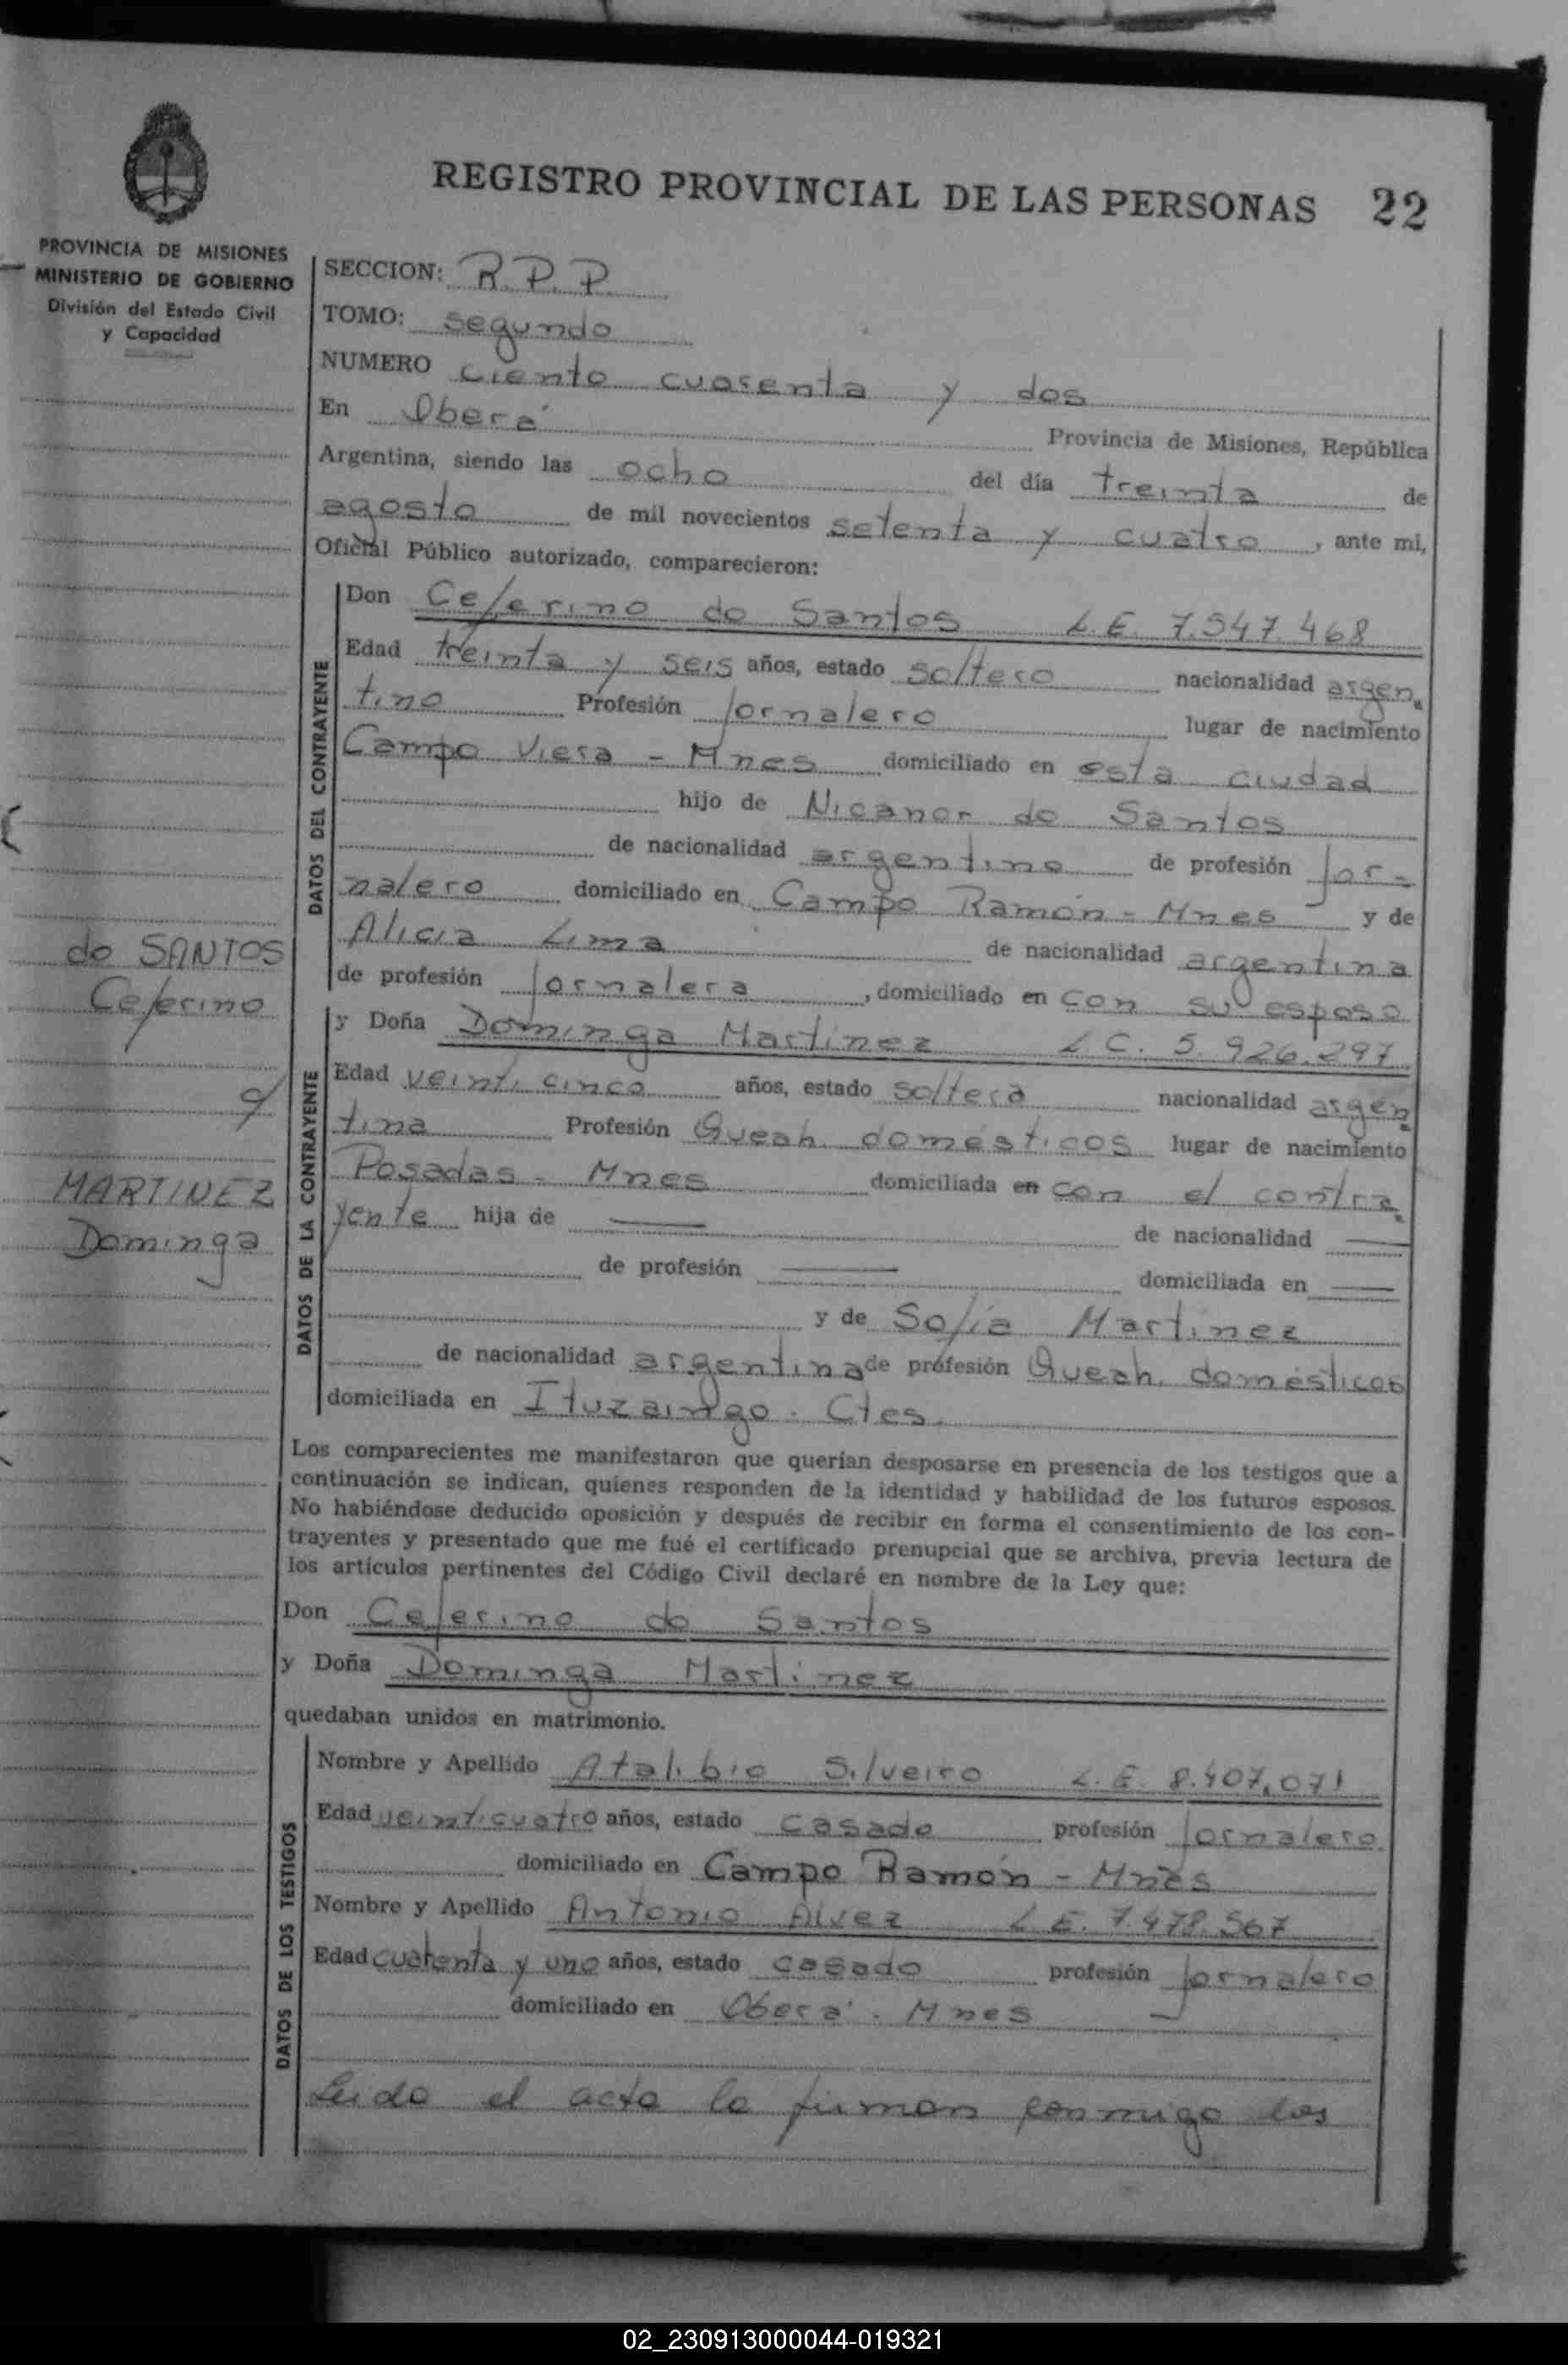 REGISTRO PROVINCIAL DE LAS PERSONAS 22
PROVINCIA DE MISIONES
MINISTERIO DE GOBIERNO
División del Estado Civil
y Capacidad
SECCION: R.P.P.
TOMO: segundo
NUMERO ciento cuarenta y dos
En Oberá Provincia de Misiones, República
Argentina, siendo las ocho del día treinta de
agosto de mil novecientos setenta y cuatro, ante mi,
Oficial Público autorizado, comparecieron:
DATOS DEL CONTRAYENTE
Don Ceferino do Santos L.E. 7.547.468
Edad treinta y seis años, estado soltero nacionalidad argen
tino Profesión jornalero lugar de nacimiento
Campo Viera - Mnes domiciliado en esta ciudad
hijo de Nicanor do Santos
de nacionalidad argentino de profesión jor-
nalero domiciliado en Campo Ramón - Mnes y de
Alicia Lima de nacionalidad argentina
de profesión jornalera, domiciliado en con su esposo
do SANTOS
Ceferino
y
MARTINEZ
Dominga
DATOS DE LA CONTRAYENTE
y Doña Dominga Martinez L.C. 5.926.297
Edad veinti cinco años, estado soltera nacionalidad argen
tina Profesión Queah. domésticos lugar de nacimiento
Posadas - Mnes domiciliada en con el contra
yente hija de — de nacionalidad —
de profesión — domiciliada en —
y de Sofia Martinez
de nacionalidad argentina de profesión Queah. domésticos
domiciliada en Ituzaingo - Ctes.
Los comparecientes me manifestaron que querían desposarse en presencia de los testigos que a
continuación se indican, quienes responden de la identidad y habilidad de los futuros esposos.
No habiéndose deducido oposición y después de recibir en forma el consentimiento de los con-
trayentes y presentado que me fué el certificado prenupcial que se archiva, previa lectura de
los artículos pertinentes del Código Civil declaré en nombre de la Ley que:
Don Ceferino do Santos
y Doña Dominga Martinez
quedaban unidos en matrimonio.
DATOS DE LOS TESTIGOS
Nombre y Apellido Atalibio Silveiro L.E. 8.407.071
Edad veinticuatro años, estado casado profesión jornalero
domiciliado en Campo Ramón - Mnes
Nombre y Apellido Antonio Alvez L.E. 7.478.567
Edad cuarenta y uno años, estado casado profesión jornalero
domiciliado en Oberá - Mnes
Leido el acta la firman conmigo los
02_230913000044-019321